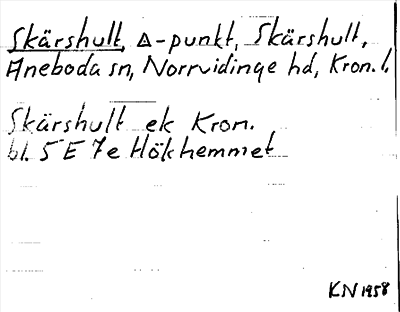 Skärshult, △-punkt, Skärshult,
Aneboda sn, Norrvidinge hd, Kron. l.
Skärshult ek Kron.
bl. 5 E 7e Hökhemmet
KN 1958